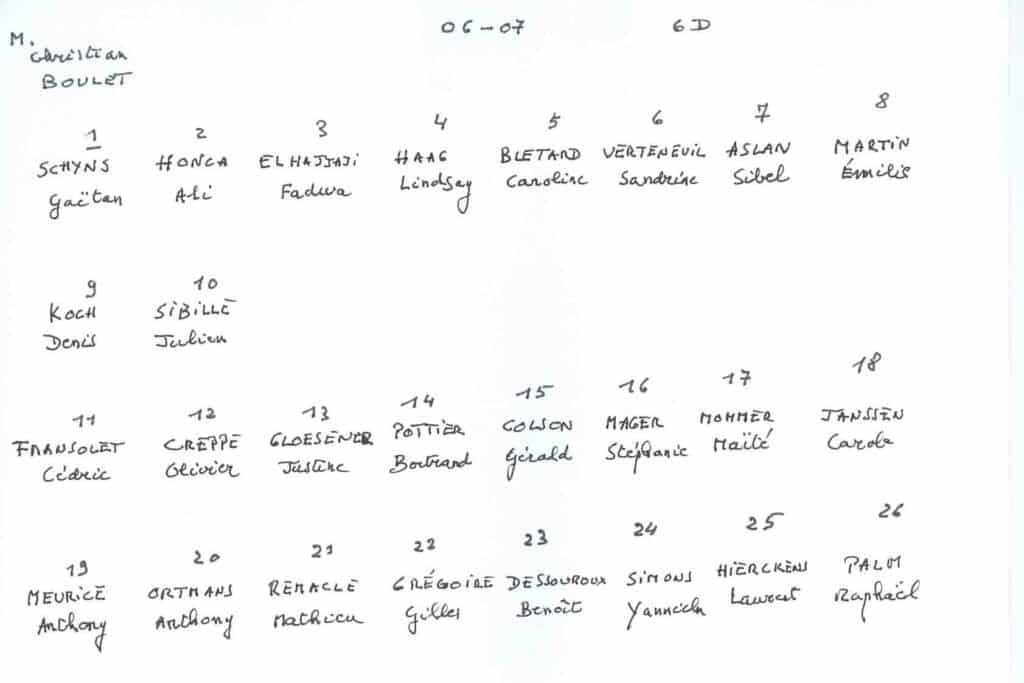 M. 06-07 6D
Christian
BOULET
1 2 3 4 5 6 7 8
SCHYNS HONCA ELHAJJAJI HAAG BLETARD VERTENEUIL ASLAN MARTIN
Gaëtan Ali Fadwa Lindsay Caroline Sandrine Sibel Émilie
9 10
KOCH SIBILLE
Denis Julien
11 12 13 14 15 16 17 18
FRANSOLET CREPPE GLOESENER POTTIER COLSON MAGER MOMMER JANSSEN
Cédric Olivier Justine Bertrand Gérald Stéphanie Maïté Carole
19 20 21 22 23 24 25 26
MEURICE ORTMANS REMACLE GRÉGOIRE DESSOUROUX SIMONS HIERCKENS PALM
Anthony Anthony Mathieu Gilles Benoît Yannick Laurent Raphaël